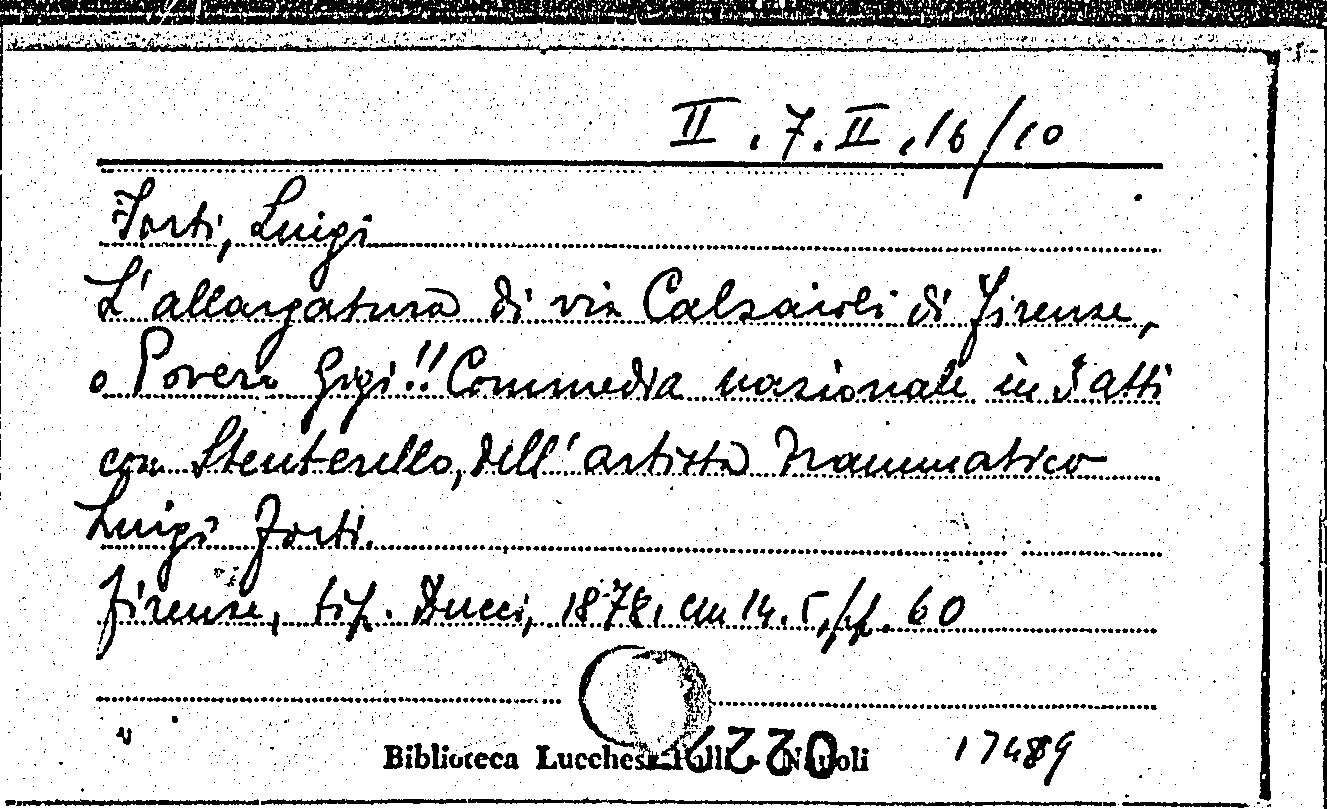 II.7.II.16/10
Forti, Luigi
L'allargatura di via Calzaioli di Firenze,
o Povero Gigi!! Commedia nazionale in 3 atti
con Stenterello, dell'artista Drammatico
Luigi Forti.
Firenze, tip. Ducci, 1878. cm 14.5, pp. 60
Biblioteca Lucchesi Palli - Napoli
17489